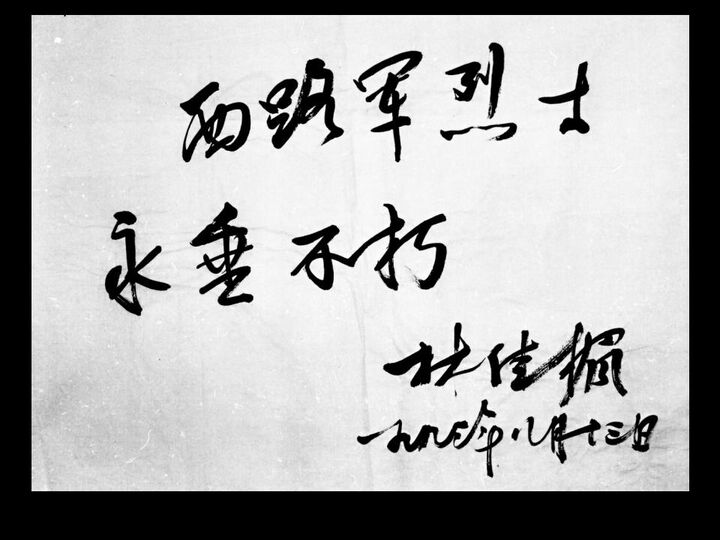 西路军烈士
永垂不朽
林佳楣
一九九三年八月十三日